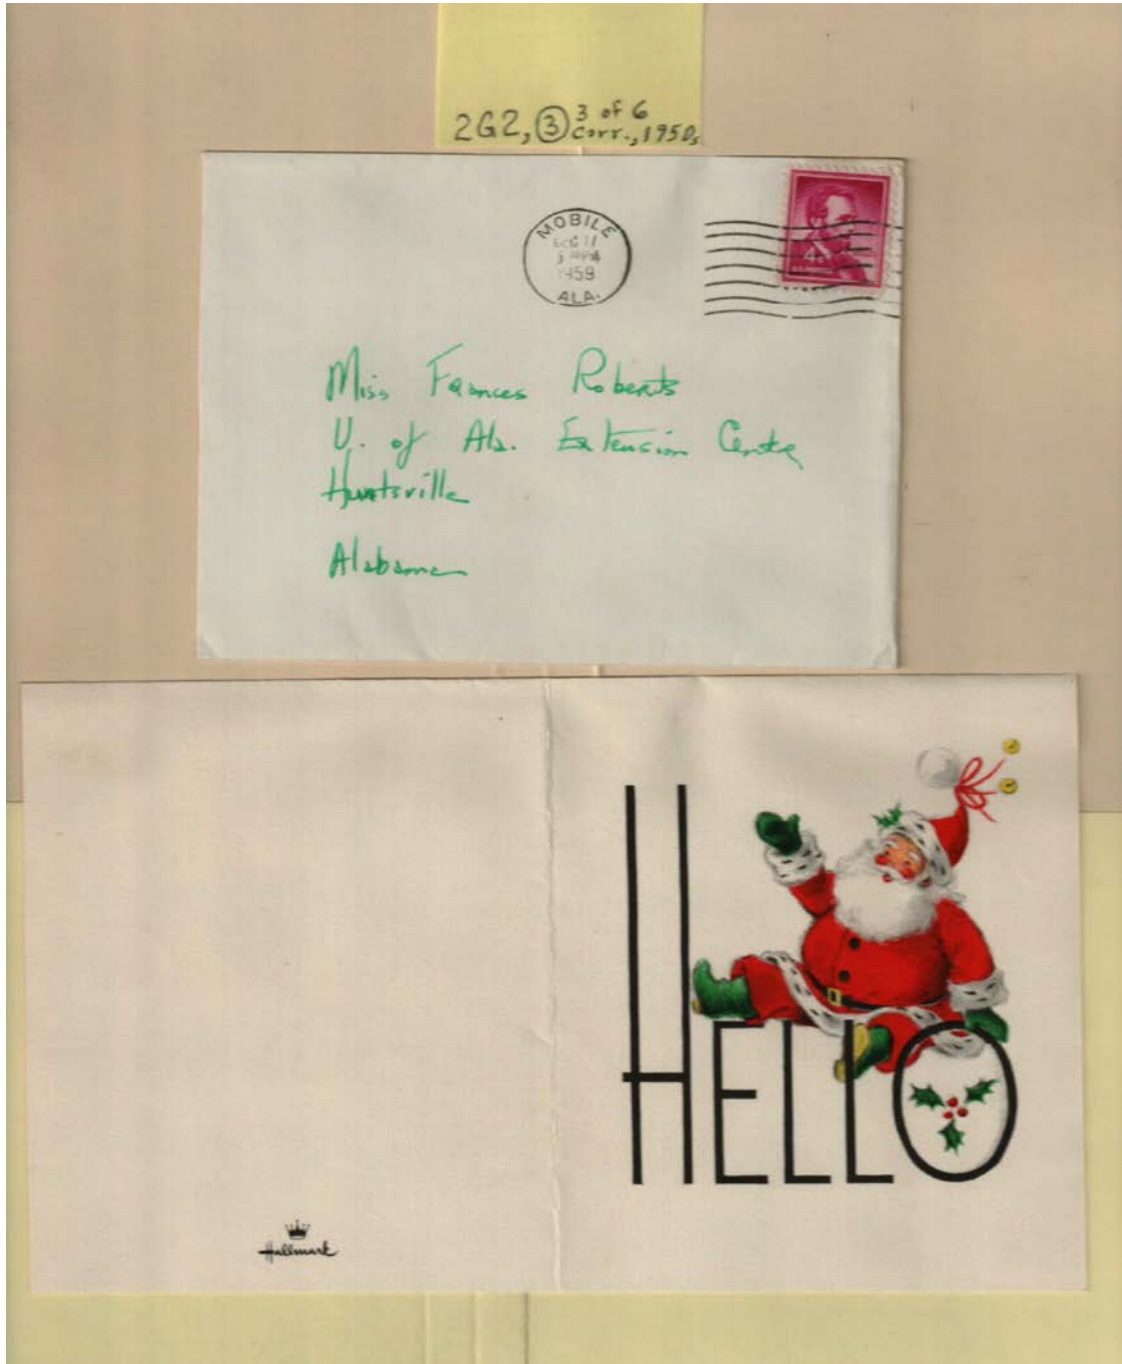 2G2, ③ 3 of 6
Corr., 1950s
MOBILE
1959
ALA.
4¢
Miss Frances Roberts
U. of Ala. Extension Center
Huntsville
Alabama
HELLO
Hallmark